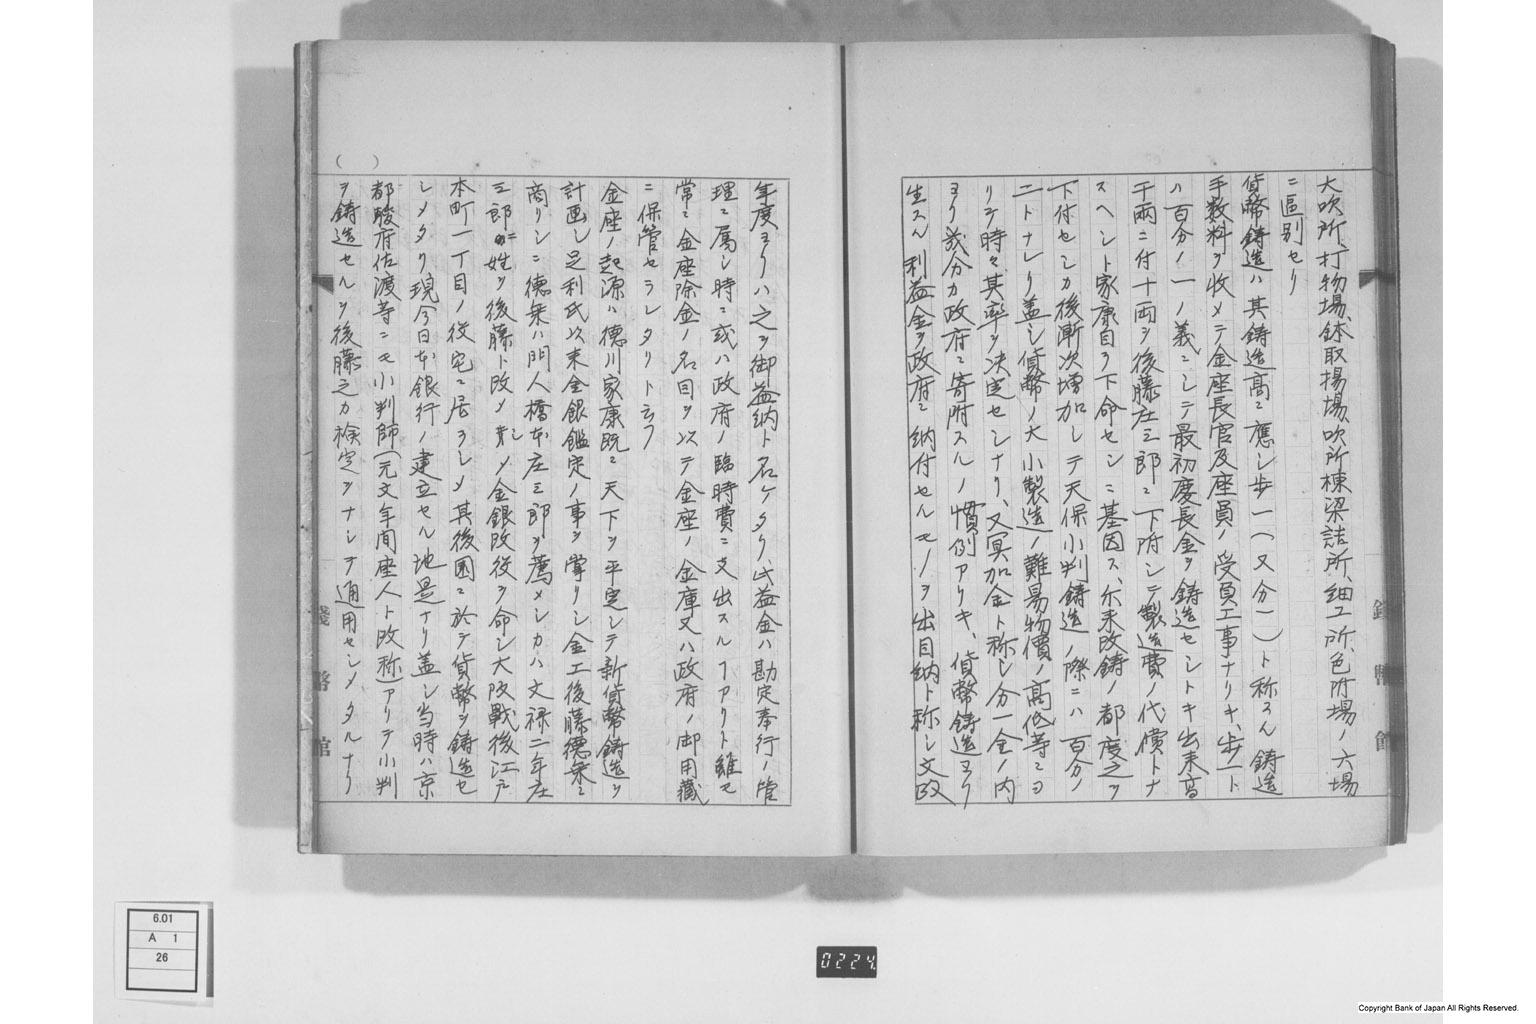 大吹所、打物場、鉢取揚場、吹所棟梁詰所、細工所、色附場ノ六場
ニ區別セリ
貨幣鋳造ハ其鋳造高ニ應シ歩一(又分一)ト称スル鋳造
手数料ヲ收メテ金座長官及座員ノ受員工事ナリキ、歩一ト
ハ百分ノ一ノ義ニシテ最初慶長金ヲ鋳造セシトキ出来高
千両ニ付十両ヲ後藤庄三郎ニ下附シテ製造費ノ代償トナ
スヘシト家康自ラ下命セシニ基因ス、尓来改鋳ノ都度之ヲ
下付セシカ後漸次増加シテ天保小判鋳造ノ際ニハ百分ノ
二トナレリ蓋シ貨幣ノ大小製造ノ難易物價ノ高低等ニヨ
リテ時々其率ヲ决定セシナリ、又冥加金ト称シ分一金ノ内
ヨリ幾分カ政府ニ寄附スルノ慣例アリキ、貨幣鋳造ヨリ
生スル利益金ヲ政府ニ納付セルモノヲ出目納ト称シ文政
年度ヨリハ之ヲ御益納ト名ケタリ此益金ハ勘定奉行ノ管
理ニ属シ時ニ或ハ政府ノ臨時費ニ支出スルヿアリト雖モ
常ニ金座除金ノ名目ヲ以テ金座ノ金庫又ハ政府ノ御用藏
ニ保管セラレタリト云フ
金座ノ起源ハ德川家康既ニ天下ヲ平定シテ新貨幣鋳造ヲ
計画シ足利氏以来金銀鑑定ノ事ヲ掌リシ金工後藤德乗ニ
商リシニ德乗ハ門人橋本庄三郎ヲ薦メシカハ文禄二年庄
三郎ニ姓ヲ後藤ト改メシメ金銀改役ヲ命シ大阪戰後江戸
本町一丁目ノ役宅ニ居ラシメ其後園ニ於テ貨幣ヲ鋳造セ
シメタリ現今日本銀行ノ建立セル地是ナリ蓋シ当時ハ京
都駿府佐渡等ニモ小判師(元文年间座人ト改称)アリテ小判
ヲ鋳造セルヲ後藤之カ檢定ヲナシテ通用セシメタルナリ
( )
錢幣館
錢幣館
6.01
A 1
26
0224
Copyright Bank of Japan All Rights Reserved.